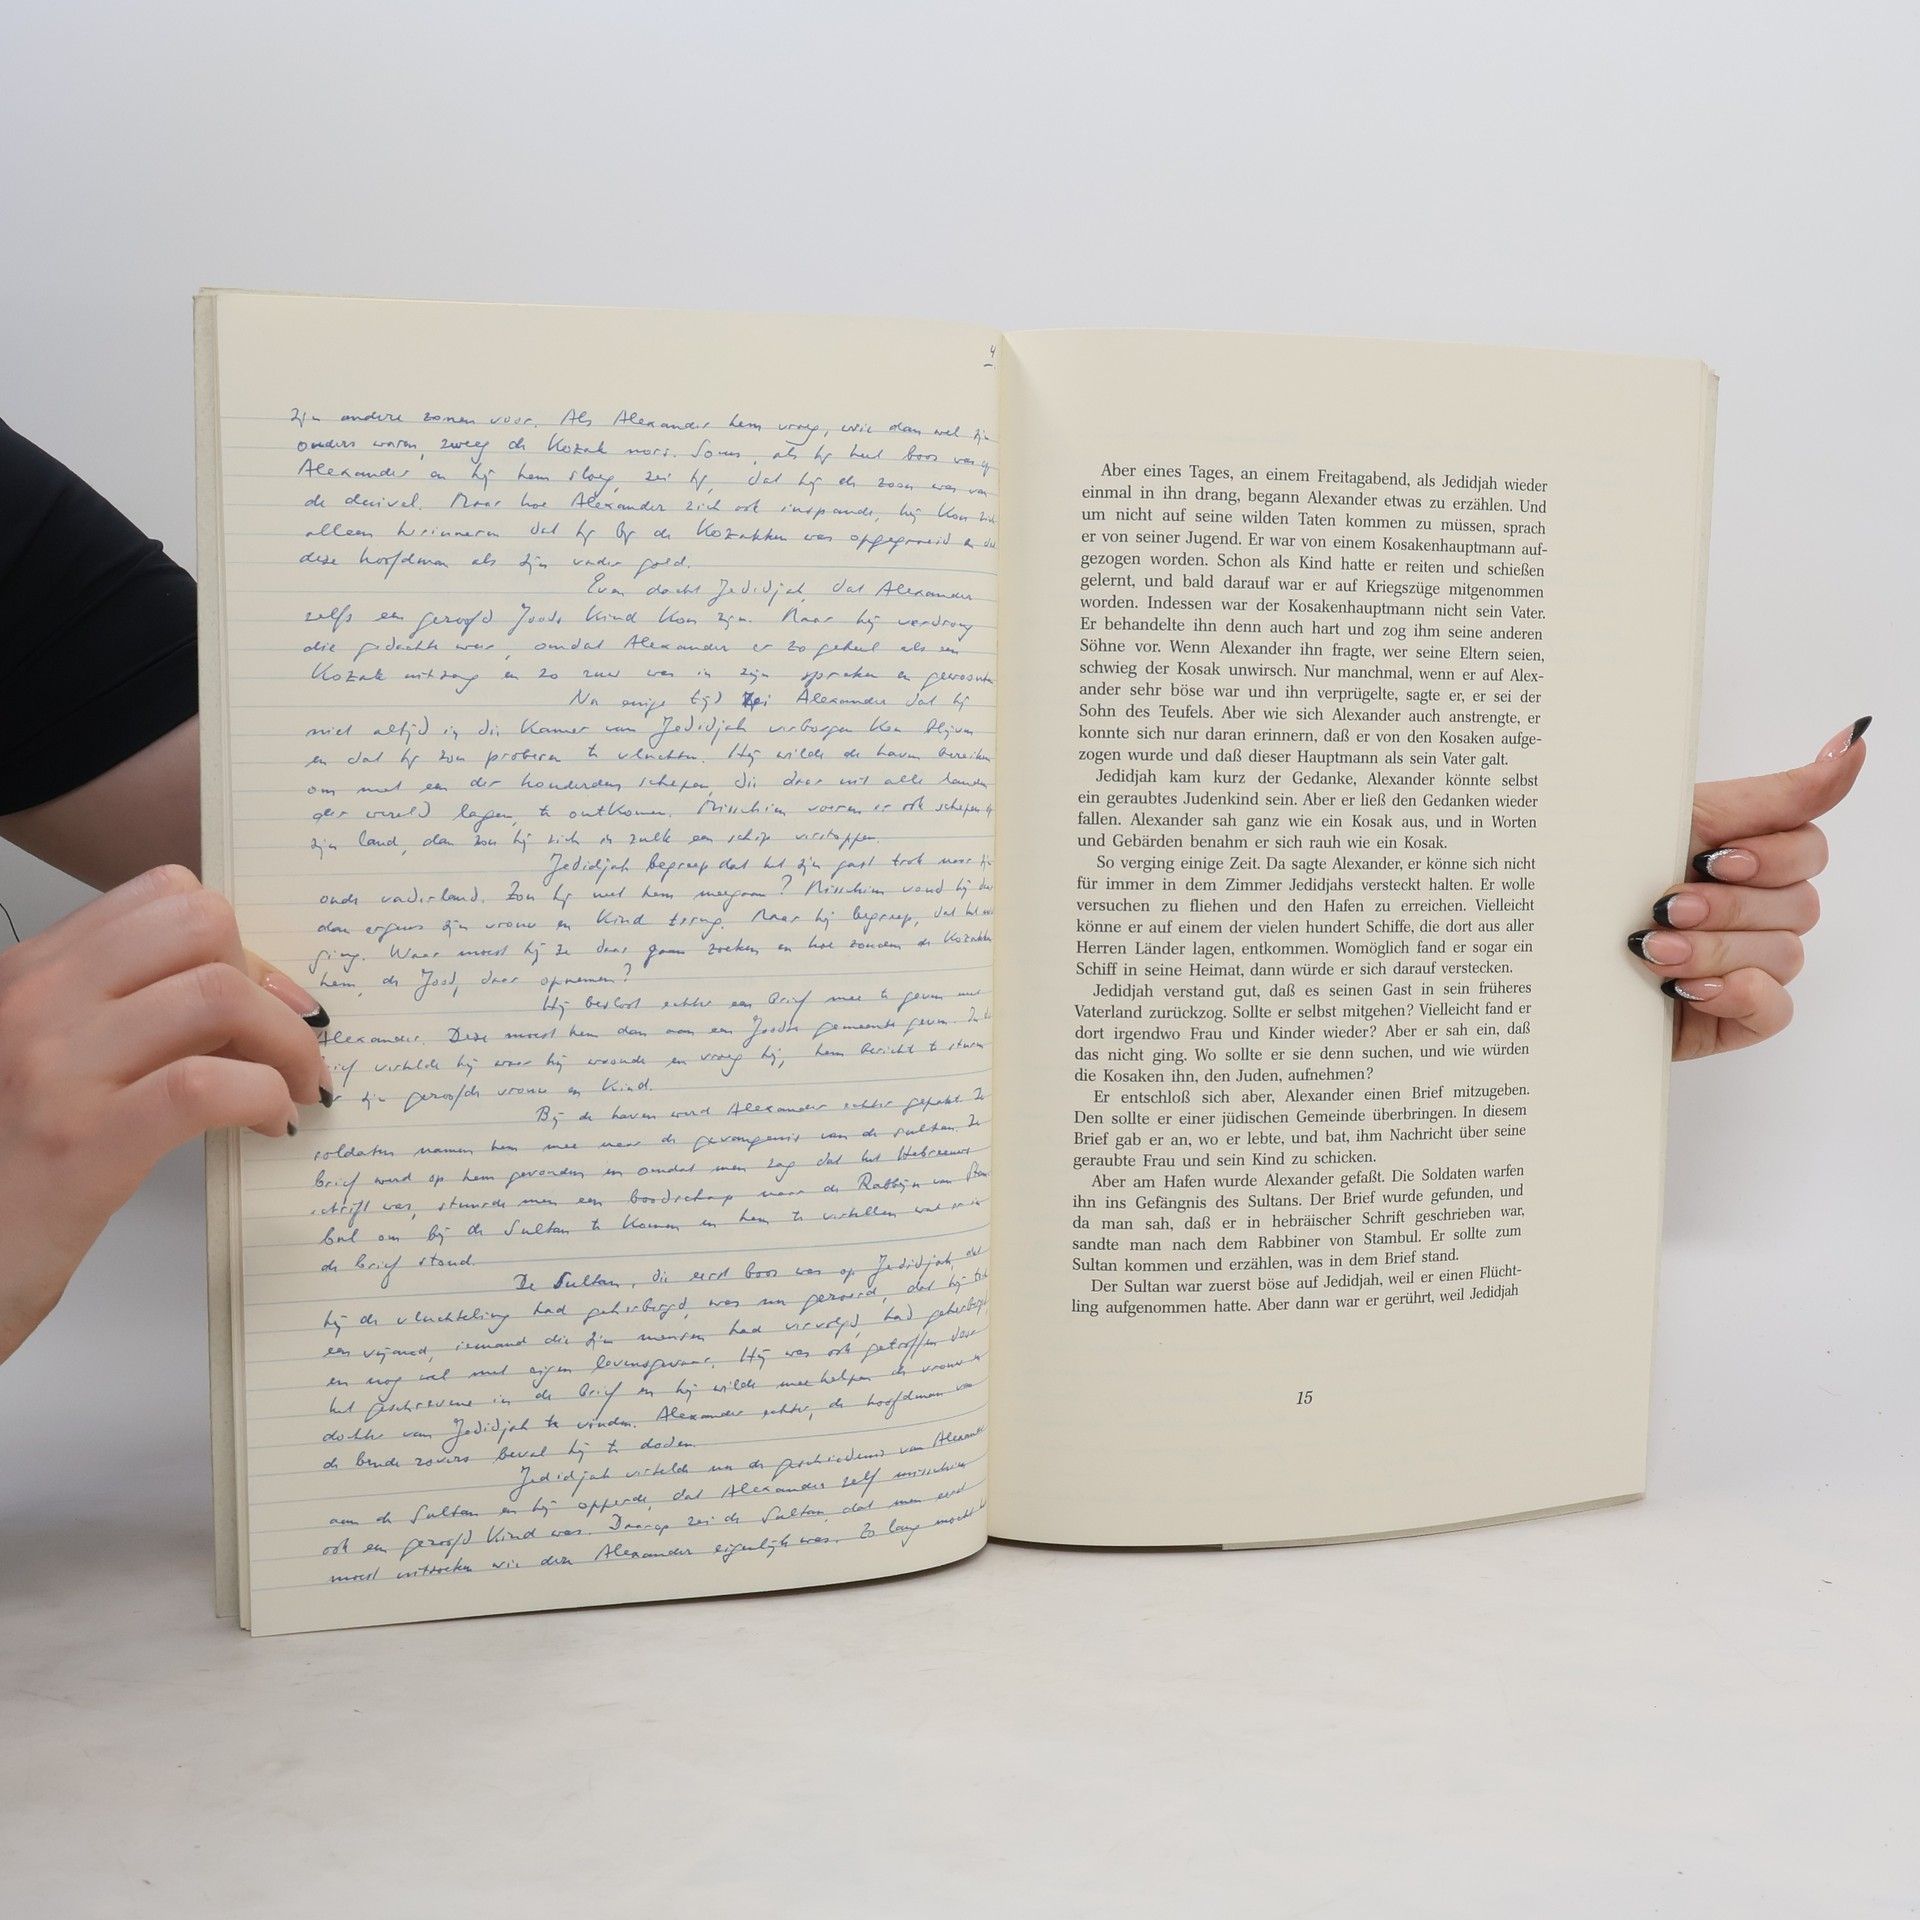 4
zijn andere zonen voor. Als Alexander hem vroeg, wie dan wel zijn
ouders waren, zweeg de Kozak nors. Soms, als hij heel boos was op
Alexander en hij hem sloeg, zei hij, dat hij de zoon was van
de duivel. Maar hoe Alexander zich ook inspande, hij kon zich
alleen herinneren dat hij bij de Kozakken was opgegroeid en dat
deze hoofdman als zijn vader gold.
Even dacht Jedidjah, dat Alexander
zelfs een geroofd Joods kind kon zijn. Maar hij verdrong
die gedachte weer, omdat Alexander er zo geheel als een
Kozak uitzag en zo ruw was in zijn spreken en gewoonten
Na enige tijd zei Alexander dat hij
niet altijd in die kamer van Jedidjah verborgen kon blijven
en dat hij zou proberen te vluchten. Hij wilde de haven bereiken
om met een der honderden schepen, die daar uit alle landen
der wereld lagen, te ontkomen. Misschien voeren er ook schepen op
zijn land, dan zou hij zich in zulk een schip verstoppen.
Jedidjah begreep dat het zijn gast trok naar zijn
oude vaderland. Zou hij met hem meegaan? Misschien vond hij daar
dan ergens zijn vrouw en kind terug. Maar hij begreep, dat het niet
ging. Waar moest hij ze daar gaan zoeken en hoe zouden de Kozakken
hem, de Jood, daar opnemen?
Hij besloot echter een brief mee te geven met
Alexander. Deze moest hem dan aan een Joodse gemeente geven. In de
brief vertelde hij waar hij woonde en vroeg hij, hem bericht te sturen
zijn geroofde vrouw en kind.
Bij de haven werd Alexander echter gepakt. De
soldaten namen hem mee naar de gevangenis van de sultan. De
brief werd op hem gevonden en omdat men zag dat het Hebreeuws
schrift was, stuurde men een boodschap naar de Rabbijn van Stam-
bul om bij de Sultan te komen en hem te vertellen wat er in
de brief stond.
De Sultan, die eerst boos was op Jedidjah, dat
hij de vluchteling had geherbergd, was nu geroerd, dat hij toch
een vijand, iemand die zijn mensen had vervolgd, had geherbergd
en nog wel met eigen levensgevaar. Hij was ook getroffen door
het geschrevene in de brief en hij wilde meehelpen de vrouw en
dochter van Jedidjah te vinden. Alexander echter, de hoofdman van
de bende rovers beval hij te doden.
Jedidjah vertelde nu de geschiedenis van Alexander
aan de Sultan en hij opperde, dat Alexander zelf misschien
ook een geroofd kind was. Daarop zei de Sultan, dat men eerst
moest uitzoeken wie deze Alexander eigenlijk was. Zo lang mocht
Aber eines Tages, an einem Freitagabend, als Jedidjah wieder
einmal in ihn drang, begann Alexander etwas zu erzählen. Und
um nicht auf seine wilden Taten kommen zu müssen, sprach
er von seiner Jugend. Er war von einem Kosakenhauptmann auf-
gezogen worden. Schon als Kind hatte er reiten und schießen
gelernt, und bald darauf war er auf Kriegszüge mitgenommen
worden. Indessen war der Kosakenhauptmann nicht sein Vater.
Er behandelte ihn denn auch hart und zog ihm seine anderen
Söhne vor. Wenn Alexander ihn fragte, wer seine Eltern seien,
schwieg der Kosak unwirsch. Nur manchmal, wenn er auf Alex-
ander sehr böse war und ihn verprügelte, sagte er, er sei der
Sohn des Teufels. Aber wie sich Alexander auch anstrengte, er
konnte sich nur daran erinnern, daß er von den Kosaken aufge-
zogen wurde und daß dieser Hauptmann als sein Vater galt.
Jedidjah kam kurz der Gedanke, Alexander könnte selbst
ein geraubtes Judenkind sein. Aber er ließ den Gedanken wieder
fallen. Alexander sah ganz wie ein Kosak aus, und in Worten
und Gebärden benahm er sich rauh wie ein Kosak.
So verging einige Zeit. Da sagte Alexander, er könne sich nicht
für immer in dem Zimmer Jedidjahs versteckt halten. Er wolle
versuchen zu fliehen und den Hafen zu erreichen. Vielleicht
könne er auf einem der vielen hundert Schiffe, die dort aus aller
Herren Länder lagen, entkommen. Womöglich fand er sogar ein
Schiff in seine Heimat, dann würde er sich darauf verstecken.
Jedidjah verstand gut, daß es seinen Gast in sein früheres
Vaterland zurückzog. Sollte er selbst mitgehen? Vielleicht fand er
dort irgendwo Frau und Kinder wieder? Aber er sah ein, daß
das nicht ging. Wo sollte er sie denn suchen, und wie würden
die Kosaken ihn, den Juden, aufnehmen?
Er entschloß sich aber, Alexander einen Brief mitzugeben.
Den sollte er einer jüdischen Gemeinde überbringen. In diesem
Brief gab er an, wo er lebte, und bat, ihm Nachricht über seine
geraubte Frau und sein Kind zu schicken.
Aber am Hafen wurde Alexander gefaßt. Die Soldaten warfen
ihn ins Gefängnis des Sultans. Der Brief wurde gefunden, und
da man sah, daß er in hebräischer Schrift geschrieben war,
sandte man nach dem Rabbiner von Stambul. Er sollte zum
Sultan kommen und erzählen, was in dem Brief stand.
Der Sultan war zuerst böse auf Jedidjah, weil er einen Flücht-
ling aufgenommen hatte. Aber dann war er gerührt, weil Jedidjah
15